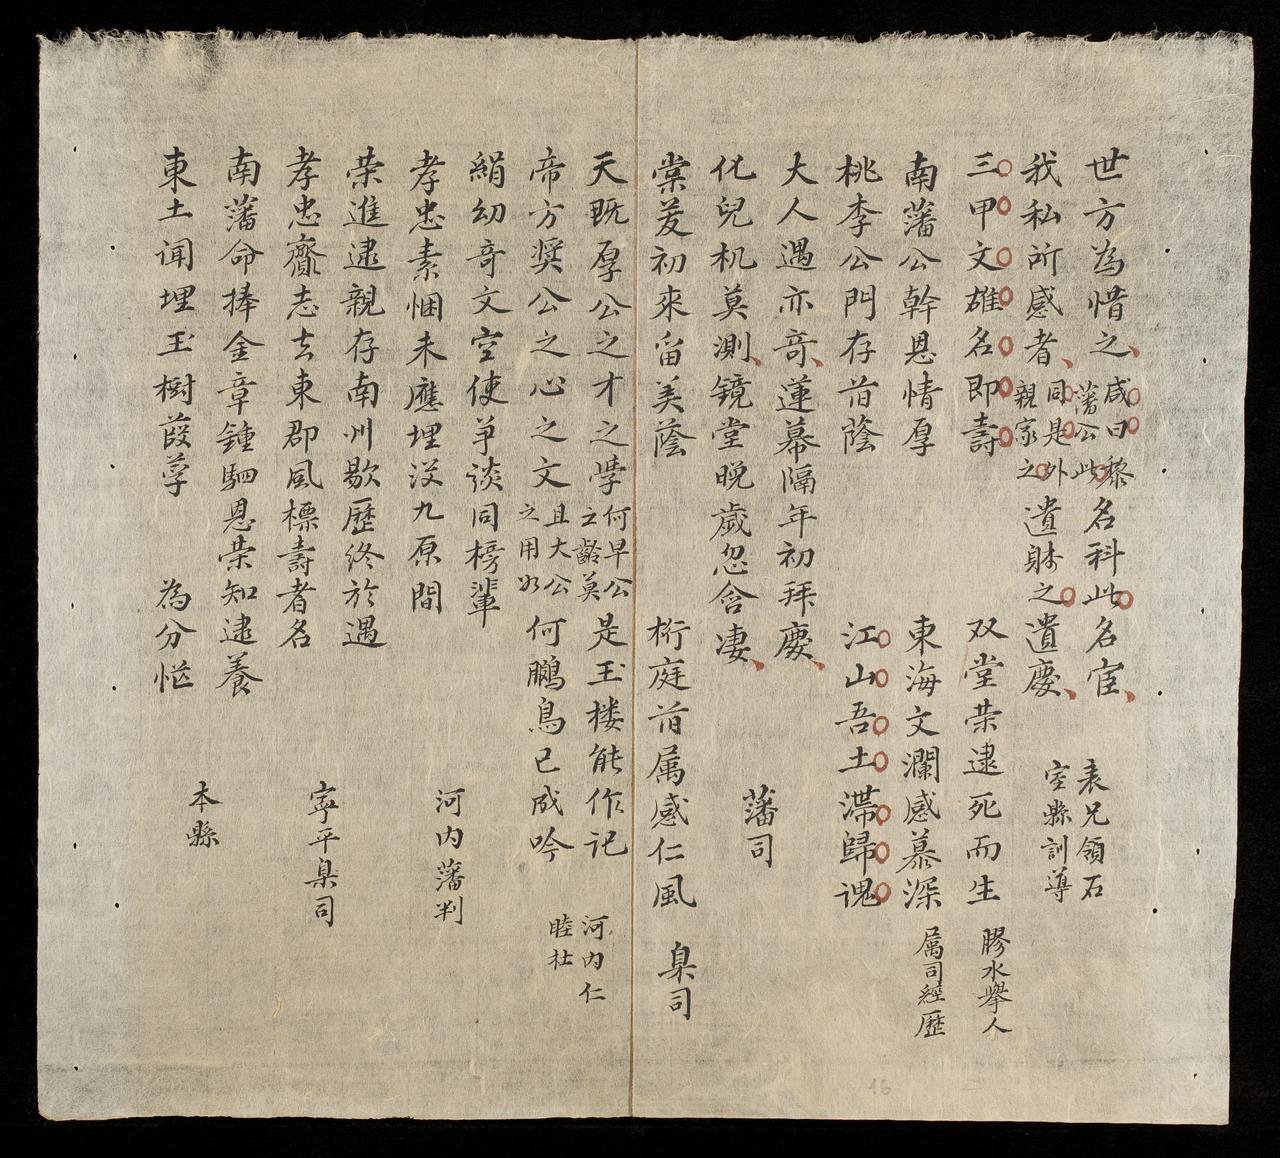 世方為惜之咸曰黎藩公此名科此名宦
我私所感者同是外親家之遺財之遺慶
表兄領石
室縣訓導
三甲文雄名即壽 双堂荣逮死而生 膠水舉人
南藩公幹恩情厚 東海文瀾感慕深 属司經歷
桃李公門存旧蔭 江山吾土滯歸魂
大人遇亦奇蓮幕隔年初拜慶
化兒机莫測鏡堂晚歲忽含凄 藩司
棠茇初來留美蔭 桁庭旧属感仁風 臬司
天既厚公之才之學何早公之齡莫是玉楼能作記
帝方獎公之心之文且大公之用如何鵩鳥已成吟
河内仁
睦社
絹幼奇文空使争談同榜輩
孝忠素悃未應埋沒九原間 河内藩判
荣進逮親存南州歇歷終於遇
孝忠齎志去東郡風標壽者名 寧平臬司
南藩命捧金章鍾駟恩荣知逮養
東土闻埋玉樹葭莩 為分恾 本縣